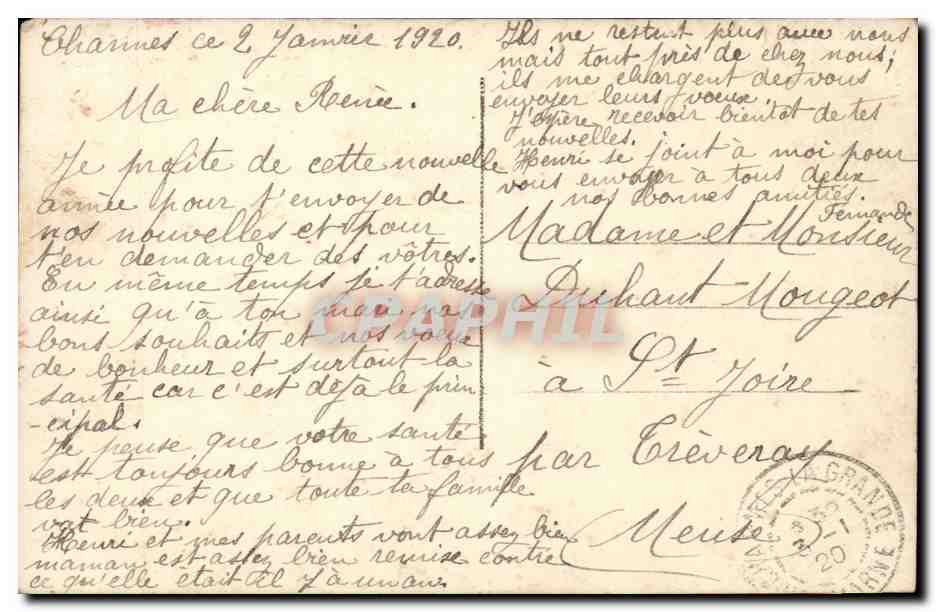 Charmes ce 2 Janvier 1920.
Ma chère Renée.
Je profite de cette nouvelle
année pour t'envoyer de
nos nouvelles et pour
t'en demander des vôtres.
En même temps je t'adresse
ainsi qu'à ton mari nos
bons souhaits et nos voeux
de bonheur et surtout la
santé car c'est déjà le prin
-cipal.
Je pense que votre santé
est toujours bonne à tous
les deux et que toute ta famille
vat bien.
Henri et mes parents vont assez bien
maman est assez bien remise contre
ce qu'elle était il y a un an.
Ils ne restent plus avec nous
mais tout près de chez nous;
ils me chargent de vous
envoyer leurs voeux.
J'espère recevoir bientôt de tes
nouvelles.
Henri se joint à moi pour
vous envoyer à tous deux
nos bonnes amitiés.
Fernande
Madame et Monsieur
Duhaut-Mougeot
à St Joire
par Trèveray
Meuse
CPAPHIL
LA GRANDE
MARNE
20